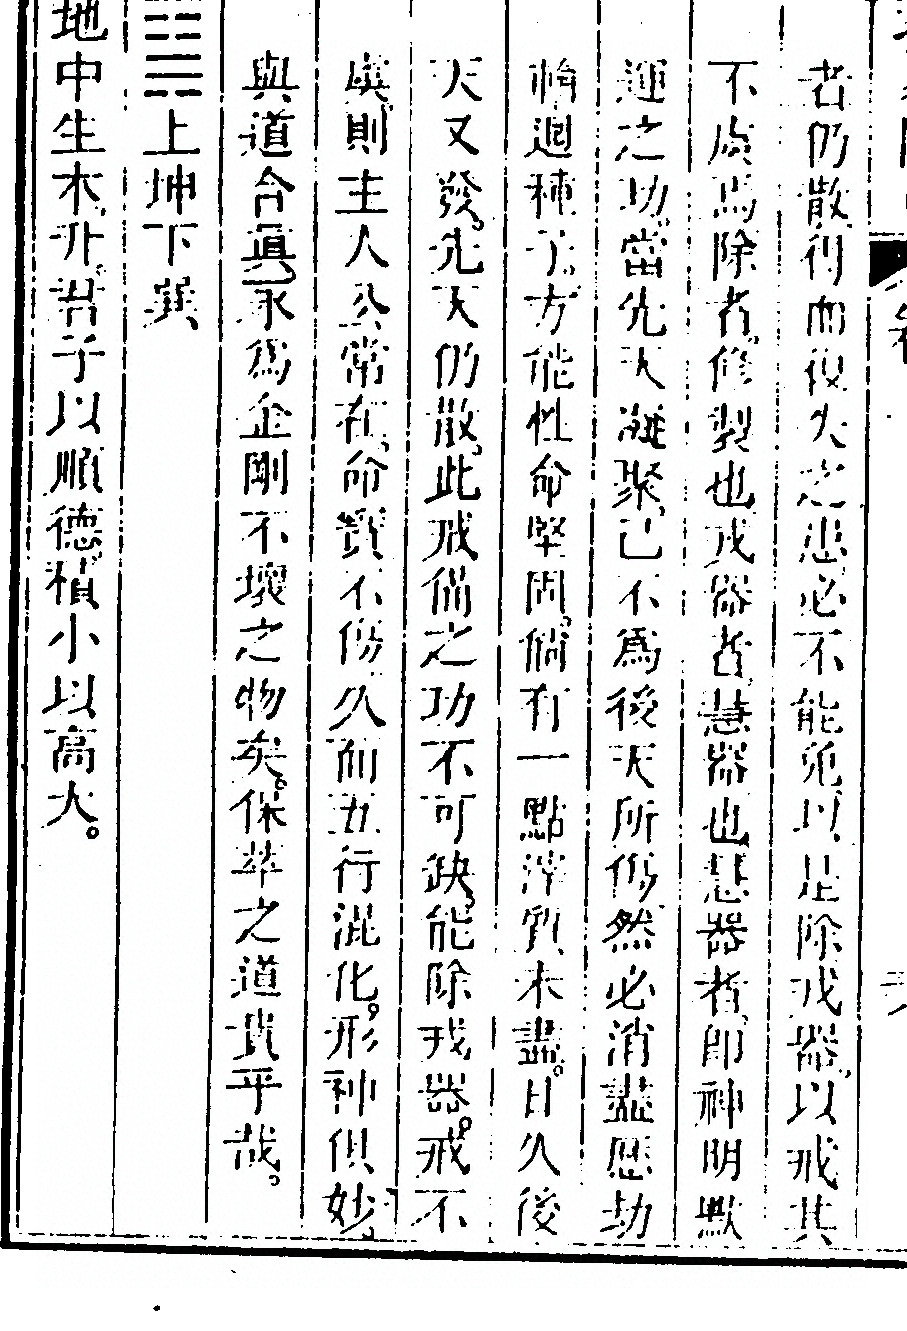 者仍散得而復失之患必不能免以是除戎器以戒其
不虞焉除者修製也戎器者慧器也慧器者即神明默
運之功當先天凝聚已不爲後天所傷然必消盡歷劫
輪迴種子方能性命堅固倘有一點滓質未盡日久後
天又發先天仍散此戒備之功不可缺能除戎器戒不
虞則主人公常在命寶不傷久而五行混化形神俱妙
與道合眞永爲金剛不壞之物矣保萃之道貴乎哉
䷭上坤下巽
地中生木升君子以順德積小以高大